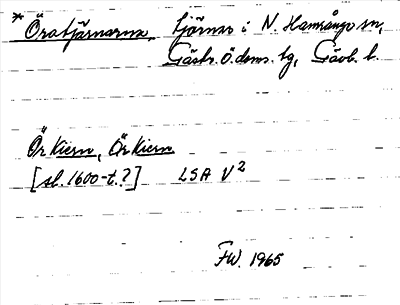 * Öratjärnarna, tjärnar i N. Hamrånge sn,
Gästr. Ö. doms. tg, Gävb. l.
Ör Kiern, Ör Kiern
[sl. 1600-t.?] LSA V²
FW. 1965